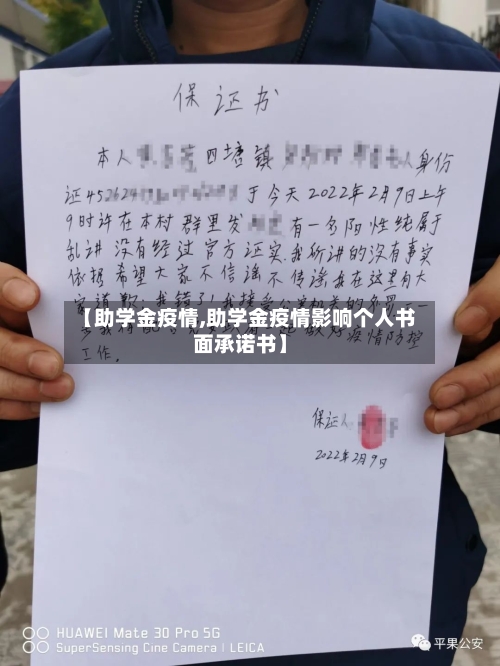 保证书
本人 四塘镇 人身份
证452624 于今天2022年2月9日上午
9时许在本村群里发 有一名阳性纯属
乱讲没有经过官方证实,我所讲的没有事实
依据希望大家不信谣不传谣,我在这里向大
家道歉:我错了!我接受公安机关的
【助学金疫情,助学金疫情影响个人书
面承诺书】
做好疫情防控
工作.
保证人
2022年2月9日
HUAWEI Mate 30 Pro 5G
SuperSensing Cine Camera | LEICA
平果公安